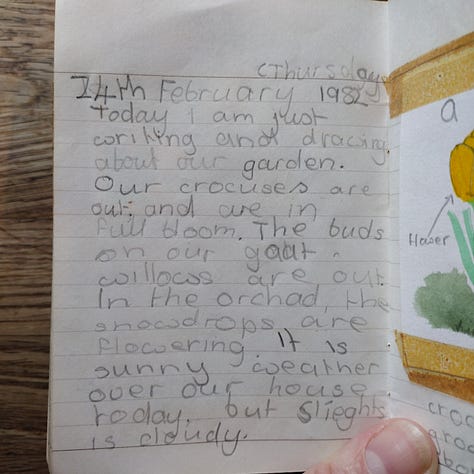 (Thursday)
24th February 1982
Today I am just
writing and drawing
about our garden.
Our crocuses are
out and are in
full bloom. The buds
on our goat -
willows are out.
In the orchad, the
snowdrops are
flowering. It is
sunny weather
over our house
today, but Slieghts
is cloudy.
a
flower
croc